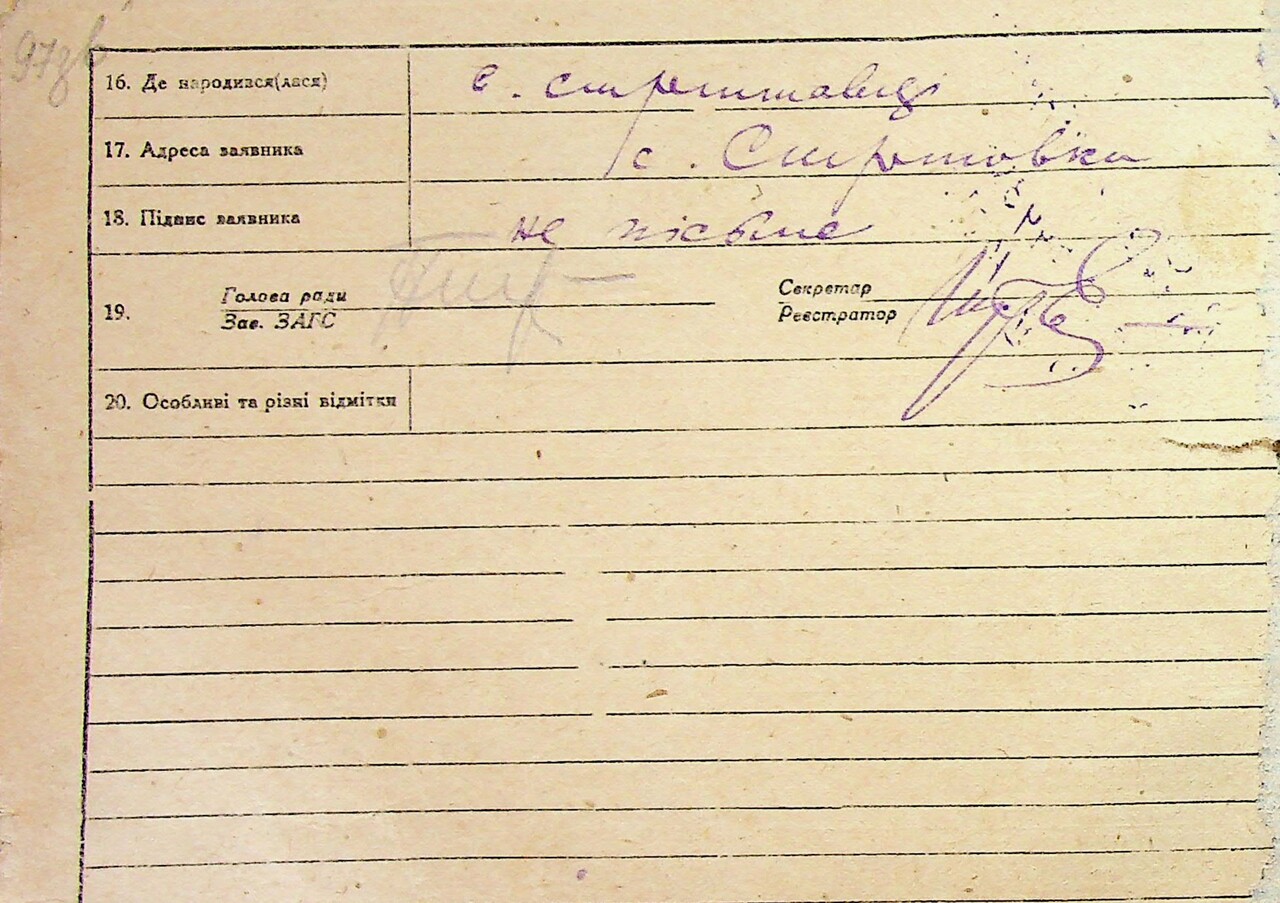 97зв
16. Де народився(лася) в. Ситовці
17. Адреса заявника с. Ситовка
18. Підпис заявника не пісьме
19. Голова ради Секретар
Зав. ЗАГС Реєстратор
20. Особливі та різні відмітки